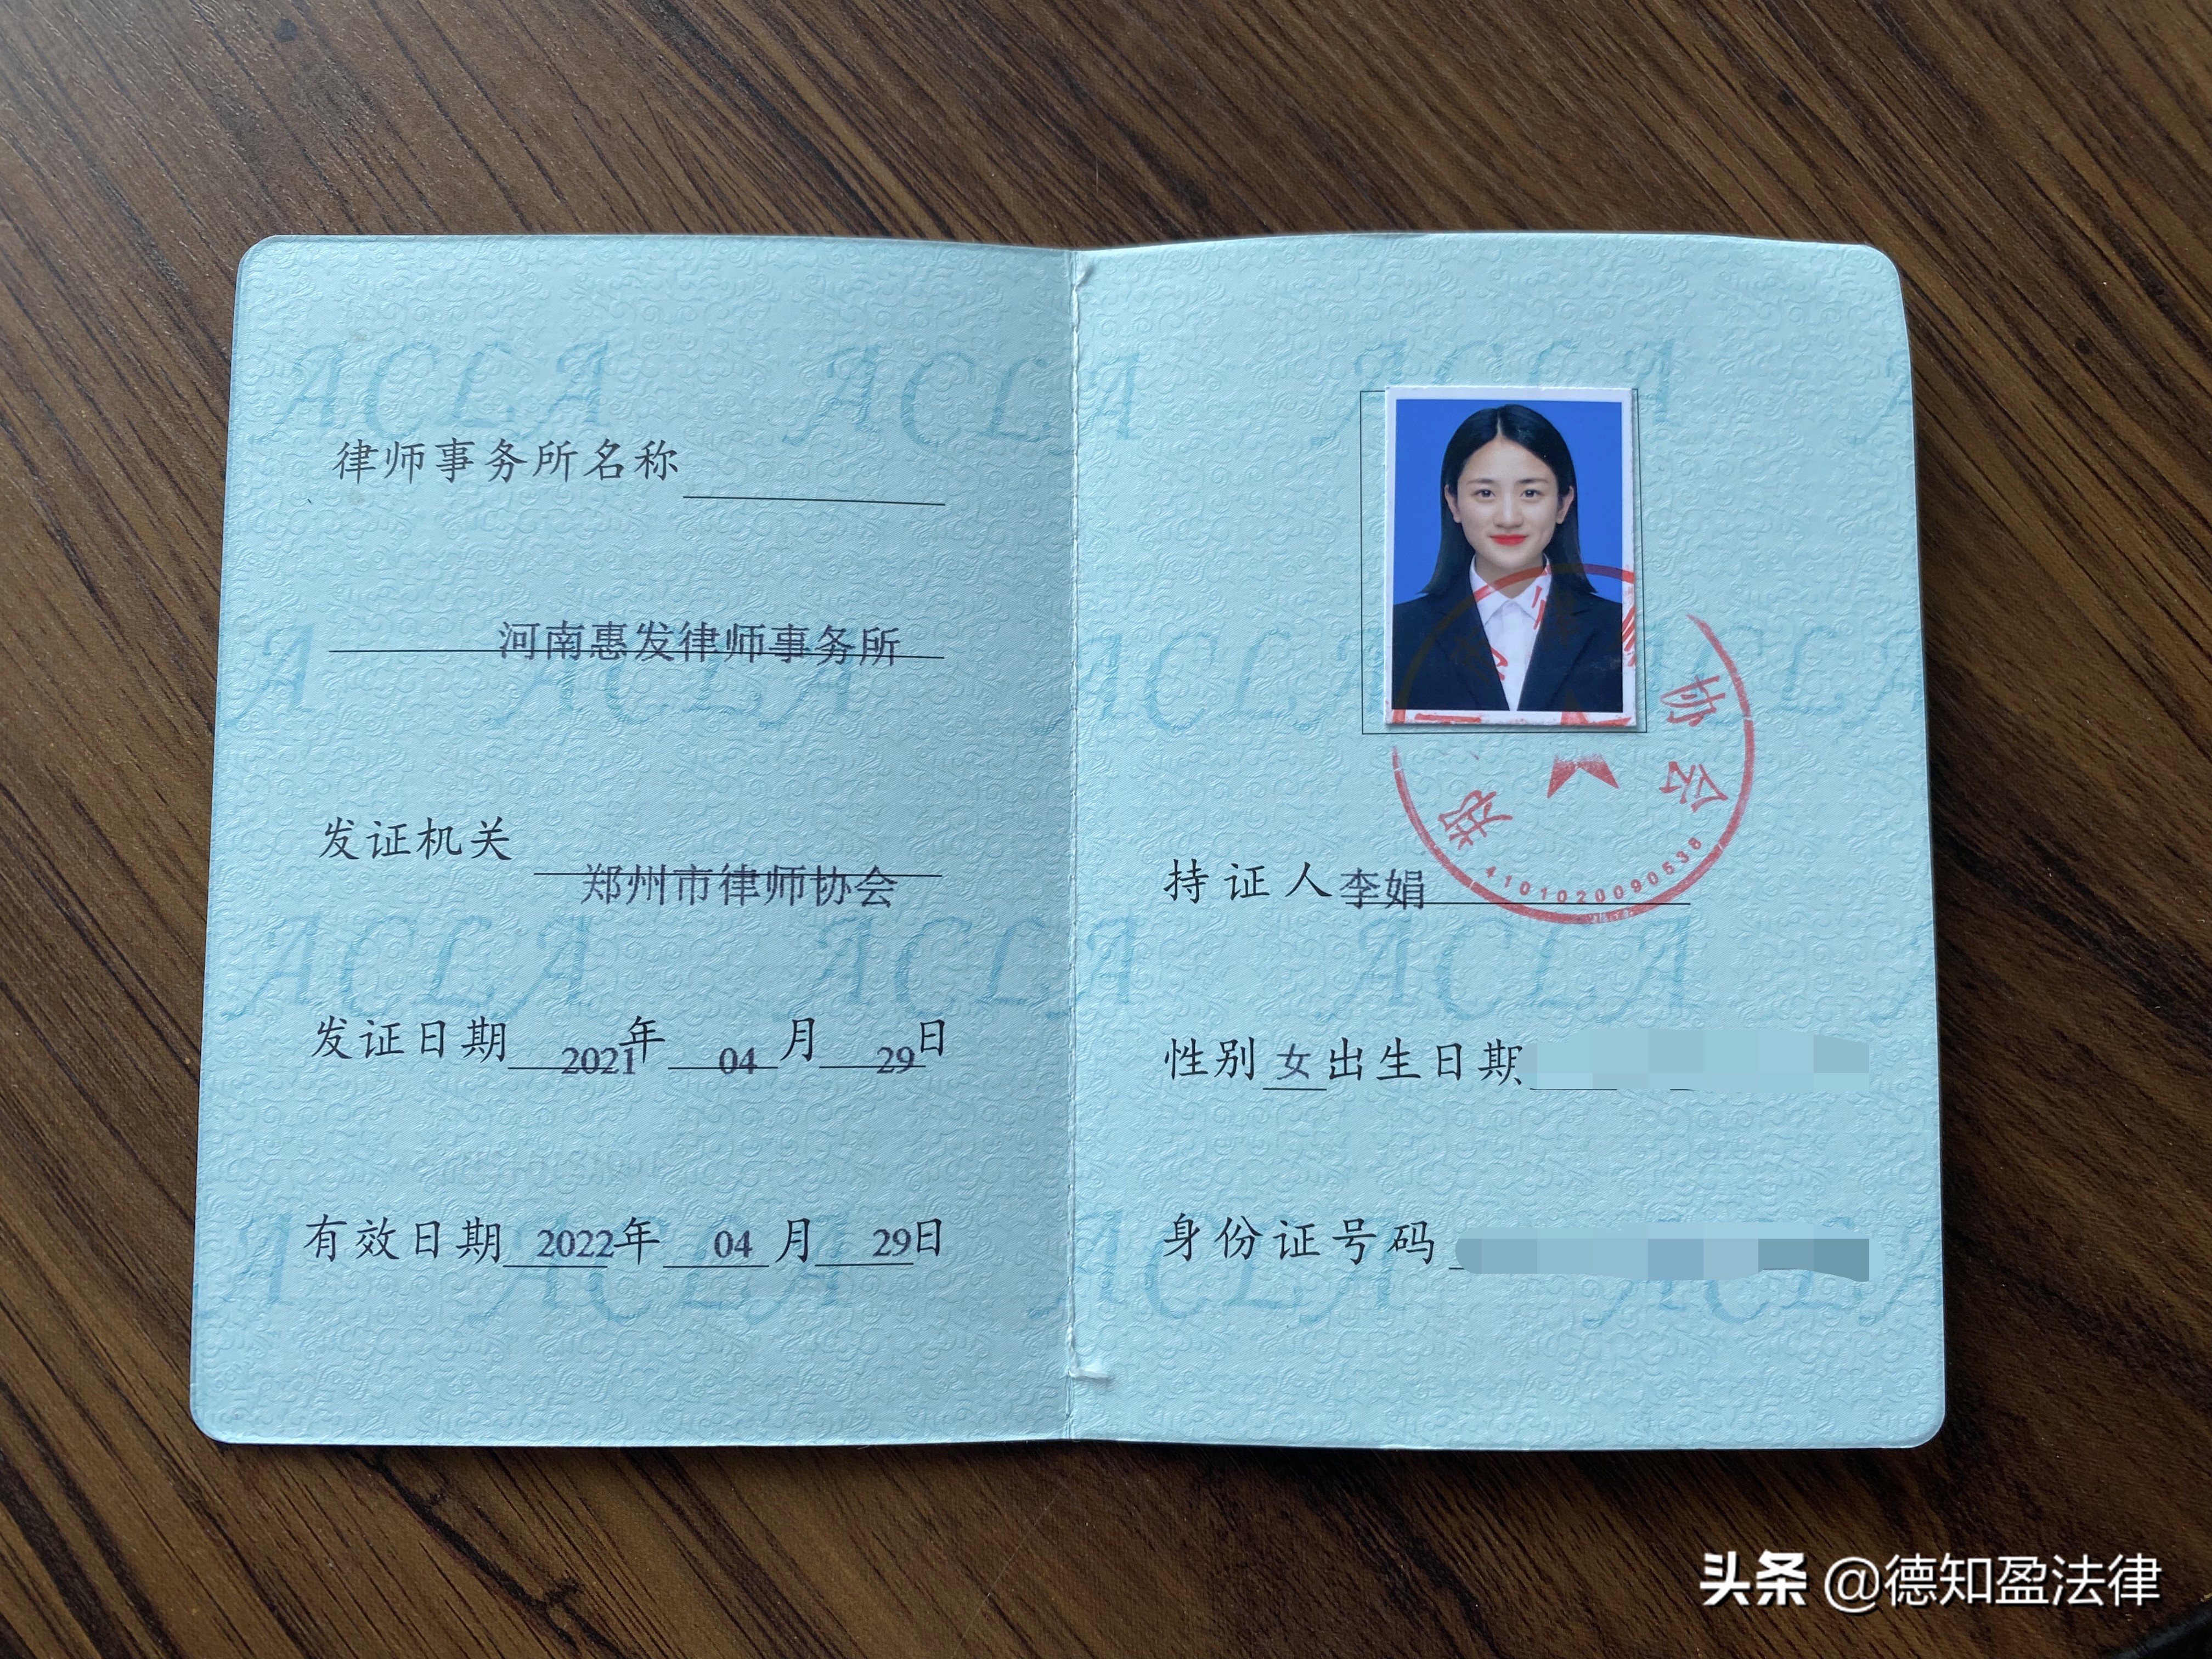 律师事务所名称
河南惠发律师事务所
发证机关 郑州市律师协会
发证日期 2021年 04 月 29日
有效日期 2022年 04 月 29日
ACLA
协会
郑
4101020090538
持证人 李娟
性别 女 出生日期
身份证号码
头条 @德知盈法律